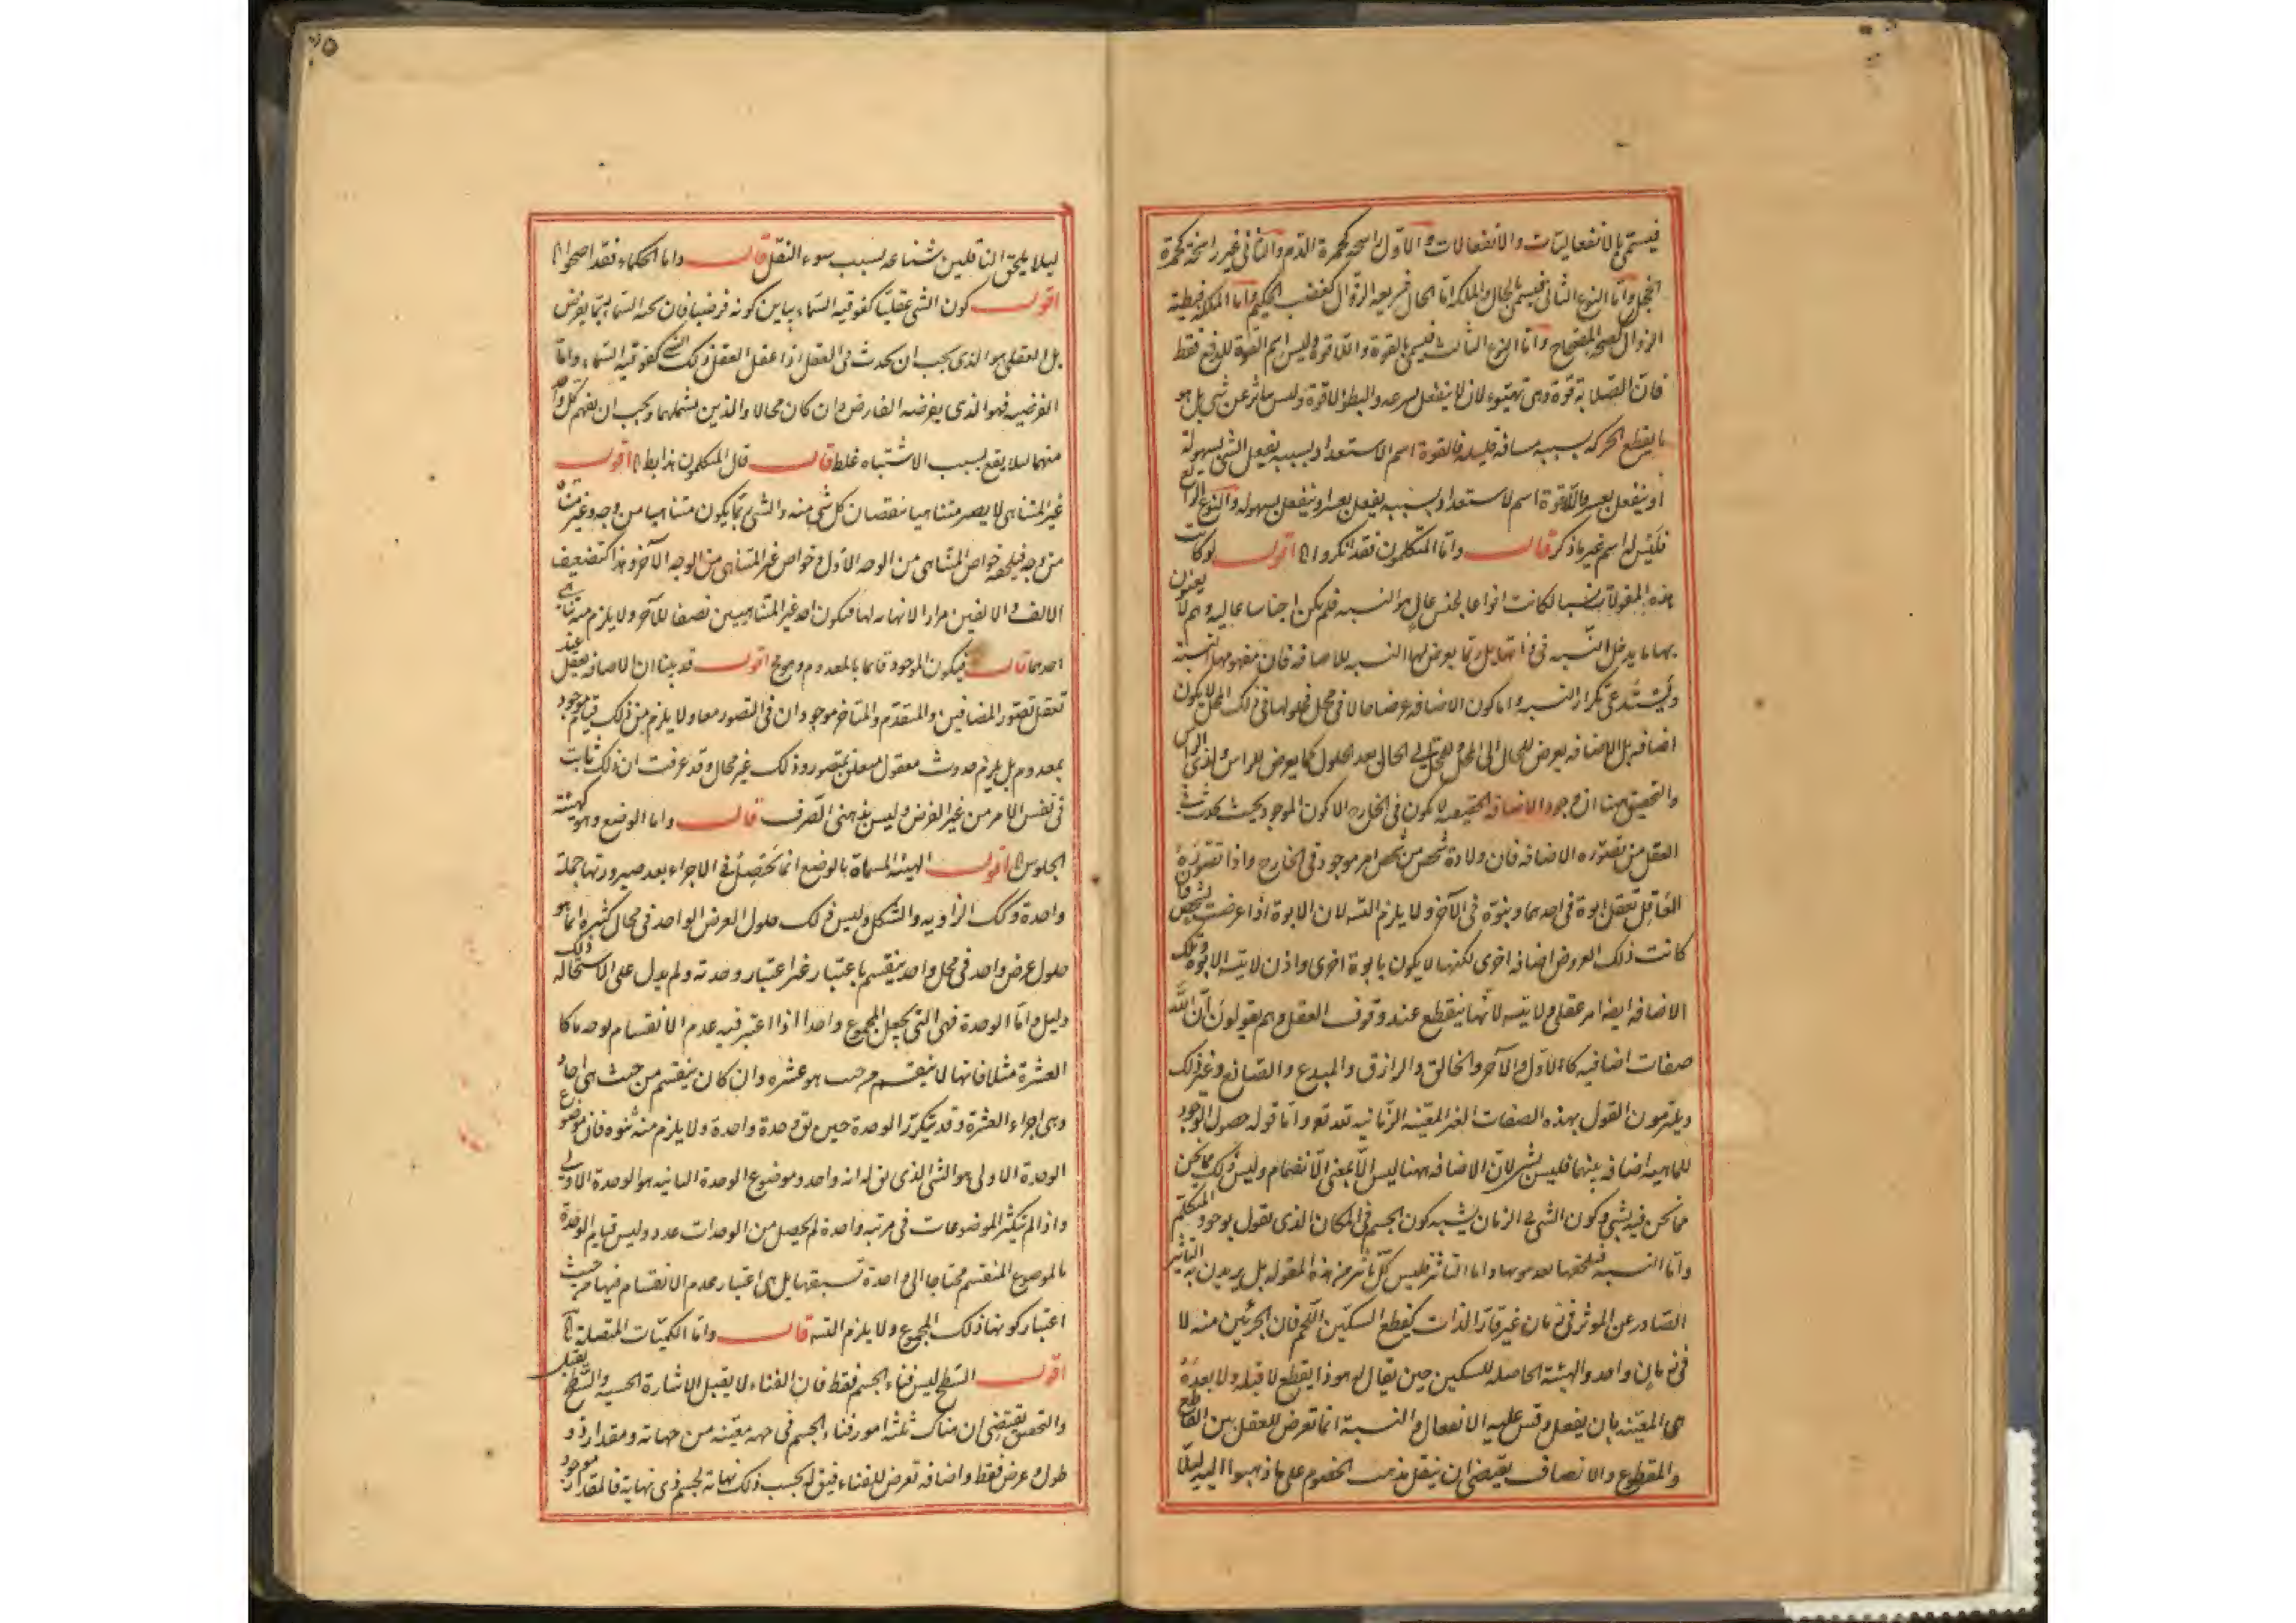 فيسمّى بالانفعاليّات والانفعالات والاوّل راسخة كحمرة الدّم والثانى غير راسخة كحمرة
الخجل وامّا النوع الثانى فيسمى بالحال والملكة امّا الحال فسريعة الزوال كغضب الحكيم وامّا الملكة فبطيئة
الزوال كصحّة المصحاح وامّا النوع الثالث فيسمى بالقوة واللّاقوة وليس اسم القوة للدفع فقط
فانّ الصّلابة قوّة وهى تهيّوء لان لا ينفعل بسرعة والبطؤ لاقوة وليس بتأثر عن شى بل هو
ما يقطع الحركة بسببه مسافة قليلة فالقوة اسم لاستعداد بسببه يفعل الشى بسهولة
او ينفعل بعسر واللّاقوة اسم لاستعداد بسببه يفعل بعسر او ينفعل بسهولة والنوع الرابع
فليس له اسم غير ما ذكر قال وامّا المتكلمون فقد انكروا الخ اقول لو كانت
هذه المقولات نسبا لكانت انواعا لجنس عال هو النسبة فلم يكن اجناسا عالية وهم لا يعنون
بها ما يدخل النسبة فى ذاتها بل ربّما يعرض لها النسبة للاضافة فان مفهومها النسبة
ويستدعى تكرار النسبة واما كون الاضافة عرضا حالا فى محل فحلولها فى ذلك المحل لا يكون
اضافة بل الاضافة يعرض للحال الى المحل وللمحل الى الحال بعد الحلول كما يعرض للراس لذى الراس
والتحقيق هنا ان وجود الاضافة الحقيقية لا يكون فى الخارج الا كون الموجود بحيث يحدث فى
العقل من تصوّره الاضافة فان ولادة شخص من شخص امر موجود فى الخارج واذا تصوّره
العاقل تعقل ابوة فى احدهما وبنوّة فى الآخر ولا يلزم التسه لان الابوة اذا عرضت لشخص ما
كانت ذلك العروض اضافة اخرى لكنها لا يكون بابوة اخرى واذن لا يتسه الابوة وتلك
الاضافة ايضا امر عقلى ولا يتسه لانّها ينقطع عند وقوف العقل وهم يقولون انّ للّه
صفات اضافية كالاوّل والآخر والخالق والرازق والمبدع والصّانع وغير ذلك
ويلتزمون القول بهذه الصفات الغير المعيّنة الزّمانية تعد تعه وامّا قوله حصول الوجود
للماهية اضافة بينهما فليس بشى لانّ الاضافة ههنا ليس الّا بمعنى الّانضمام وليس ذلك مما نحن
مما نحن فيه بشى وكون الشى فى الزمان يشبه كون الجسم فى المكان الذى يقول بوجوده المتكلّم
وامّا النسبة فيلحقها بعد ثبوتها واما التاثر فليس كلّ تاثر من هذه المقولة بل يريدون به التأثير
الصّادر عن الموثر فى زمان غير قارّ الذات كقطع السكين اللّحم فان الجزئين منه لا
فى زمان واحد والهيئة الحاصلة للسكين حين يقال له هو ذا يقطع لا قبله ولا بعده
هى المعيّنة بان يفعل وقس عليه الانفعال والنسبة انما تعرض للعقل بين القاطع
والمقطوع والانصاف يقتضى ان ينقل مذهب الخصوم على ما ذهبوا اليه ليلّا
ليلا يلحق الناقلين شناعة بسبب سوء النقل قال واما الحكماء فقد احتجوا الخ
اقول كون الشى عقليّا كفوقية السّماء يباين كونه فرضيا فان تحتية السّماء ربّما يفرض
بل العقلى هو الذى يجب ان يحدث فى العقل اذا عقل العقل ذلك الشى كفوقية السّماء وامّا
الفرضى فهو الذى يفرضه الفارض وان كان محالا والذهن يشملهما ويجب ان يفهم كلّ واحد
منهما ليلا يقع بسبب الاشتباه غلط قال قال المتكلمون هذا يبطل الخ اقول
غير المتناهى لا يصير متناهيا بنقصان كل شى منه والشى ربّما يكون متناهيا من وجه وغير متناه
من وجه فيلحقه خواص المتناهى من الوجه الاوّل وخواص غير المتناهى من الوجه الآخر وهذا كتضعيف
الالف والالفين مرارا لا نهاية لها فيكون احد غير المتناهيين نصفا للآخر ولا يلزم منه تناهى
احدهما قال فيكون الموجود قائما بالمعدوم وهو مح اقول قد بيّنا ان الاضافة تعقل عند
تعقل تصوّر المضافين والمتقدّم والمتاخر موجودان فى التصور معا ولا يلزم من ذلك قيام موجود
بمعدوم بل يلزم حدوث معقول متعلق بمتصور وذلك غير محال وقد عرفت ان ذلك ثابت
فى نفس الامر من غير الفرض وليس بذهنى الصّرف قال واما الوضع وهو كهيئة
الجلوس الخ اقول الهيئة المسمّاة بالوضع انما تحصل فى الاجزاء بعد صيرورتها جملة
واحدة وكك الزاوية والشكل وليس ذلك حلول العرض الواحد فى محال كثيرة انما هو
حلول عرض واحد فى محل واحد ينقسم باعتبار غير اعتبار وحدته ولم يدل على استحالة ذلك
دليل وامّا الوحدة فهى التى يجعل المجموع واحدا اذا اعتبر فيه عدم الانقسام لوجه ما كا
العشرة مثلا فانها لا ينقسم من حيث هو عشرة وان كان ينقسم من حيث هى احاد
وهى اجزاء العشرة وقد يتكرّر الوحدة حين يق وحدة واحدة ولا يلزم منه شنوه فان موضوع
الوحدة الاولى هو الشى الذى يق له انه واحد وموضوع الوحدة الثانية هو الوحدة الاولى
واذا لم يتكثّر الموضوعات فى مرتبة واحدة لم يحصل من الوحدات عدد وليس قيام الوحدة
بالموضوع المنقسم محتاجا الى وحدة تسبقها بل هى اعتبار عدم الانقسام فيها من حيث
اعتبار كونها ذلك المجموع ولا يلزم التسه قال وامّا الكميّات المتصلة الخ
اقول السّطح ليس فناء الجسم فقط فان الفناء لا يقبل الاشارة الحسيه والسّطح يقبل
والتحقيق يقتضى ان هناك ثلثة امور فناء الجسم فى جهة معيّنة من جهاته ومقدار ذو
طول وعرض فقط واضافة تعرض للفناء فيق له بحسب ذلك نهاية لجسم ذى نهاية فالمقدار موجود